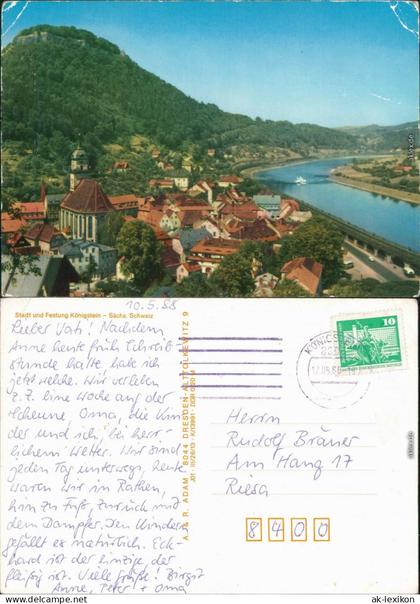 Stadt und Festung Königstein – Sächs. Schweiz
10.5.88
Lieber Vati! Nachdem
Anne heute früh Schreib-
stunde hatte, habe ich
jetzt welche. Wir verleben
z.Z. eine Woche auf der
Oma, die Kin-
der und ich, bei herr-
lichem Wetter. Wir sind
jeden Tag unterwegs, heute
waren wir in Rathen,
hin zu Fuß, zurück mit
dem Dampfer. Den Kindern
gefällt es natürlich. Eck-
hard ist der einzige der
fleißig ist. Viele Grüße! Birgit
Anne, Peter + Oma
A. & R. ADAM 8044 DRESDEN-ALTKOLKEWITZ 9
KÖNIGS
10
Herrn
Rudolf Bräuer
Am Hang 17
Riesa
8400
ak-lexikon.de
© www.ak-lexikon.de
ak-lexikon